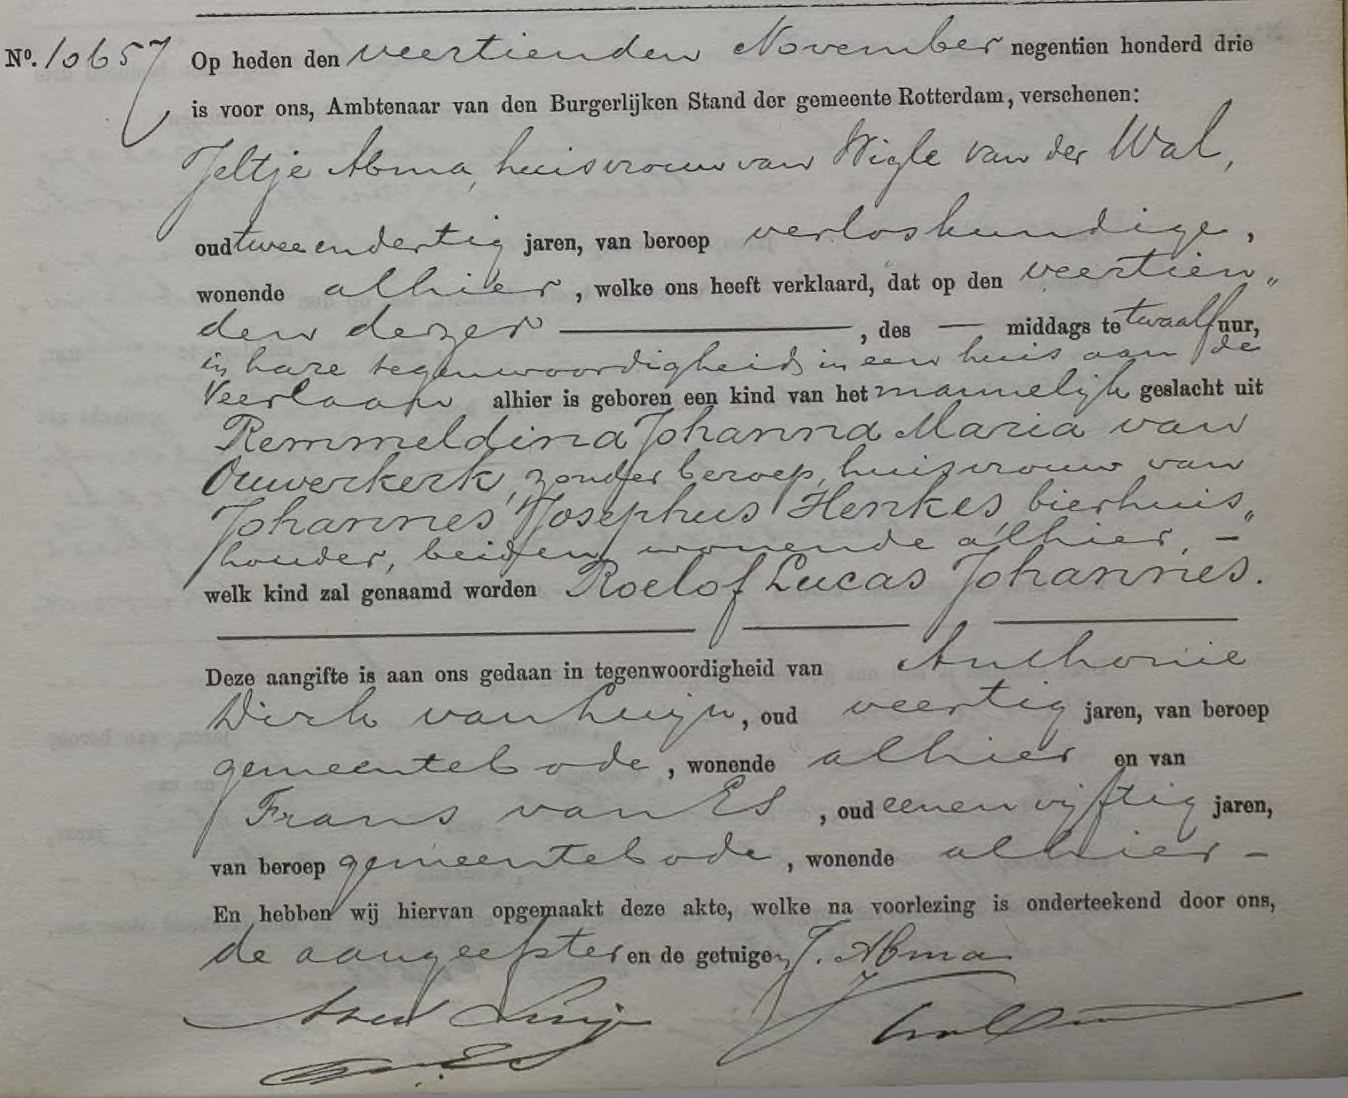 No. 10657 Op heden den veertienden November negentien honderd drie
is voor ons, Ambtenaar van den Burgerlijken Stand der gemeente Rotterdam, verschenen:
Jeltje Abma, huisvrouw van Wigle van der Wal,
oud tweeendertig jaren, van beroep verloskundige,
wonende alhier, welke ons heeft verklaard, dat op den veertien„
den dezer —, des — middags te twaalf uur,
in hare tegenwoordigheid in een huis aan de
Veerlaan alhier is geboren een kind van het mannelijk geslacht uit
Remmeldina Johanna Maria van
Ouwerkerk, zonder beroep, huisvrouw van
Johannes Josephus Henkes, bierhuis„
houder, beiden wonende alhier, —
welk kind zal genaamd worden Roelof Lucas Johannes.
Deze aangifte is aan ons gedaan in tegenwoordigheid van Anthonie
Dirk van Luijn, oud veertig jaren, van beroep
gemeentebode, wonende alhier en van
Frans van Es, oud eenenvijftig jaren,
van beroep gemeentebode, wonende alhier —
En hebben wij hiervan opgemaakt deze akte, welke na voorlezing is onderteekend door ons,
de aangeefster en de getuigen, J. Abma